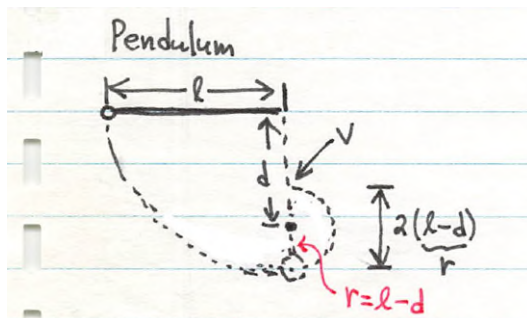 Pendulum
l
d
V
2(l-d)
r
r=l-d